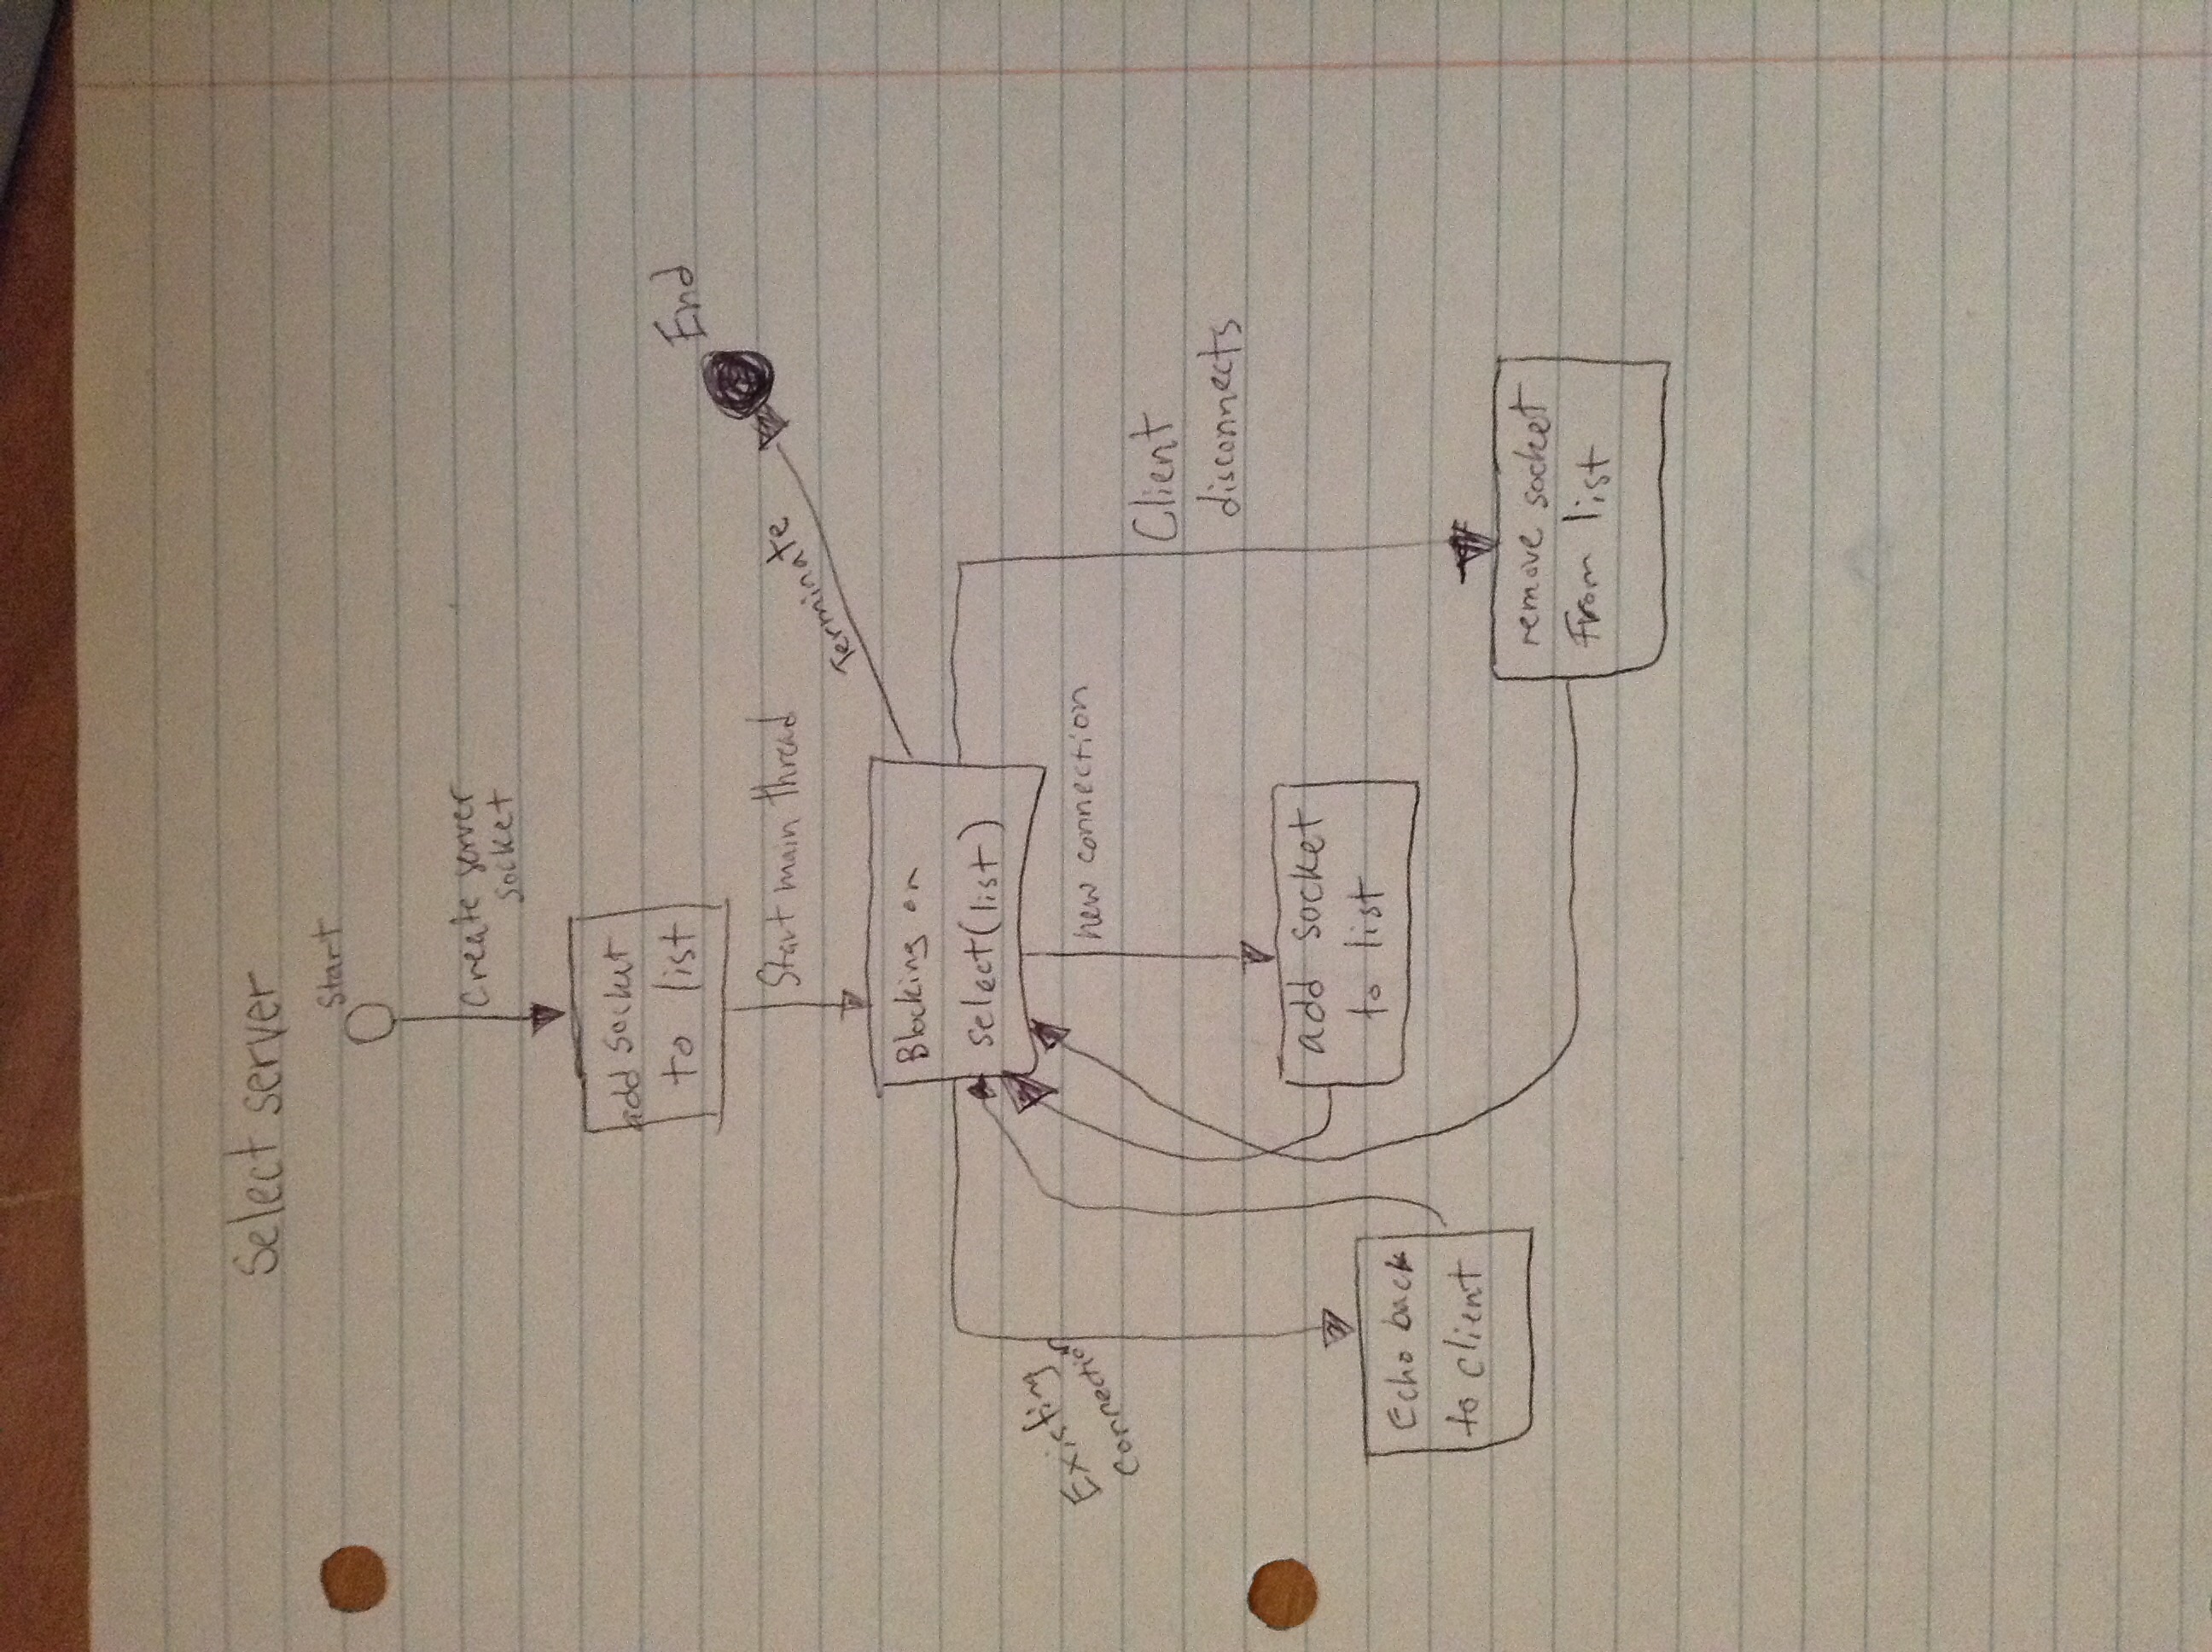 Select server
Start
Create server
socket
add socket
to list
End
Start main thread
Terminate
Blocking on
select(list)
Existing
connection
new connection
Client
disconnects
add socket
to list
Echo back
to client
remove socket
From list